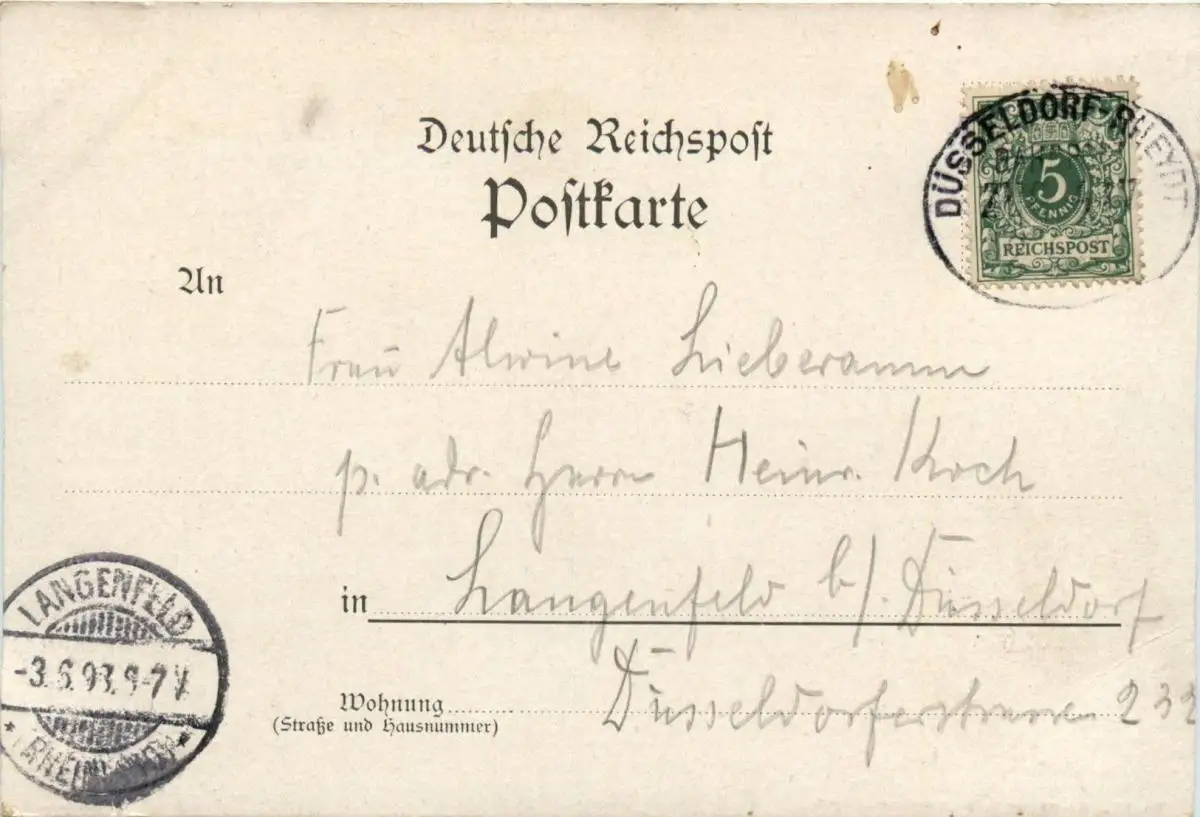 Deutsche Reichspost
Postkarte
DÜSSELDORF-RHEYDT
5
PFENNIG
REICHSPOST
An
Frau Alwine Lieberamm
p. adr. Herrn Heinr. Koch
in Langenfeld b/ Düsseldorf
Wohnung Düsseldorferstrasse 232
(Straße und Hausnummer)
LANGENFELD
-3.6.93. 9-7 V.
*(RHEINLAND)*